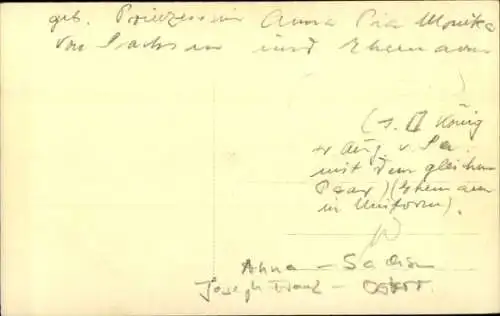 geb. Prinzessin Anna Pia Monika
von Sachsen und Ehemann
(s. II König
Fr Aug. v. Sa.
mit dem gleichen
Paar) (Ehemann
in Uniform).
Anna - Sachsen
Joseph Franz -